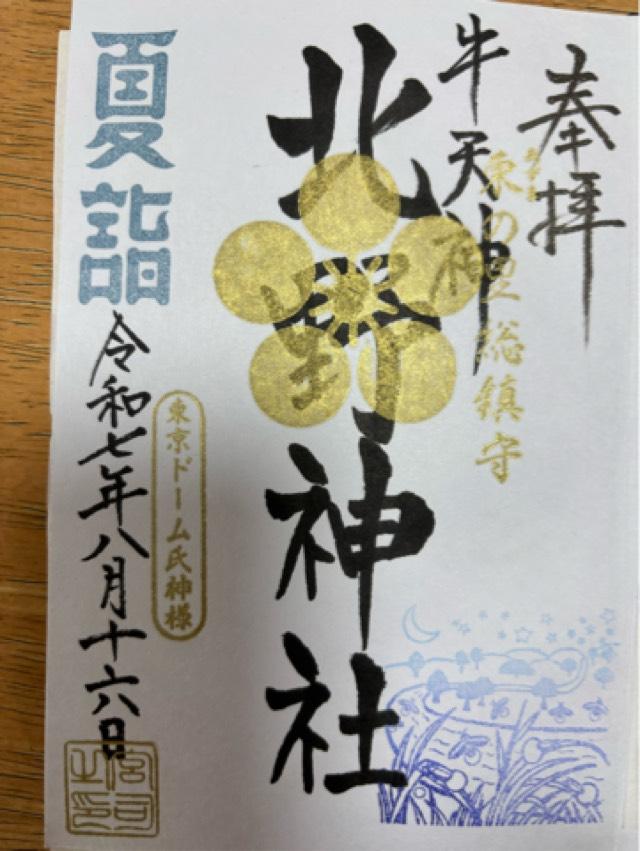 奉拝
東の聖総鎮守
牛天神
北野神社
東京ドーム氏神様
夏詣
令和七年八月十六日
宮司之印